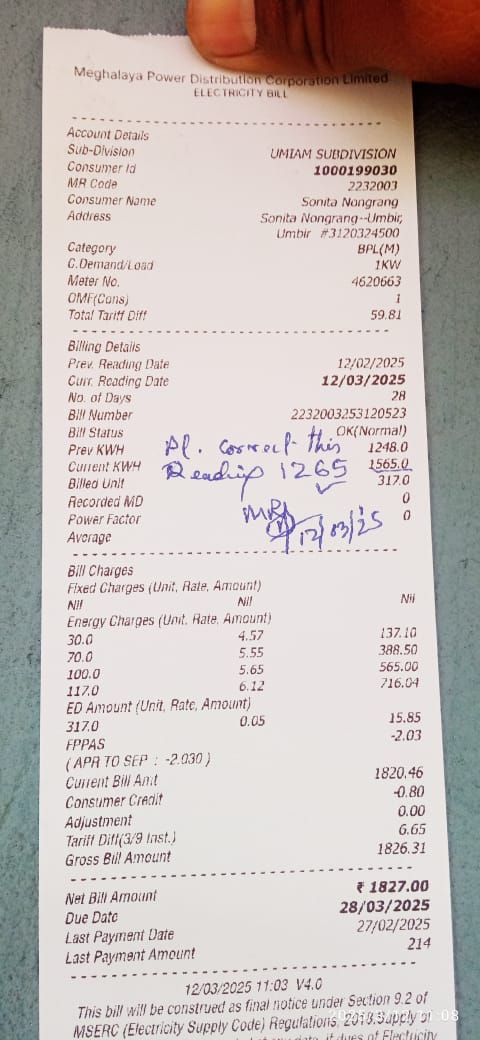 Meghalaya Power Distribution Corporation Limited
ELECTRICITY BILL
Account Details
Sub-Division UMIAM SUBDIVISION
Consumer Id 1000199030
MR Code 2232003
Consumer Name Sonita Nongrang
Address Sonita Nongrang--Umbir,
Umbir #3120324500
Category BPL(M)
C.Demand/Load 1KW
Meter No. 4620663
OMF(Cons) 1
Total Tariff Diff 59.81
Billing Details
Prev. Reading Date 12/02/2025
Curr. Reading Date 12/03/2025
No. of Days 28
Bill Number 2232003253120523
Bill Status OK(Normal)
Prev KWH 1248.0
Pl. correct this
Current KWH 1565.0
Reading 1265
Billed Unit 317.0
Recorded MD 0
MR
Power Factor 0
12/03/25
Average
Bill Charges
Fixed Charges (Unit, Rate, Amount)
Nil Nil Nil
Energy Charges (Unit, Rate, Amount)
30.0 4.57 137.10
70.0 5.55 388.50
100.0 5.65 565.00
117.0 6.12 716.04
ED Amount (Unit, Rate, Amount)
317.0 0.05 15.85
FPPAS -2.03
( APR TO SEP : -2.030 )
Current Bill Amt 1820.46
Consumer Credit -0.80
Adjustment 0.00
Tariff Diff(3/9 Inst.) 6.65
Gross Bill Amount 1826.31
Net Bill Amount ₹ 1827.00
Due Date 28/03/2025
Last Payment Date 27/02/2025
Last Payment Amount 214
12/03/2025 11:03 V4.0
This bill will be construed as final notice under Section 9.2 of
MSERC (Electricity Supply Code) Regulations, 2018.Supply of
if dues of Electricity